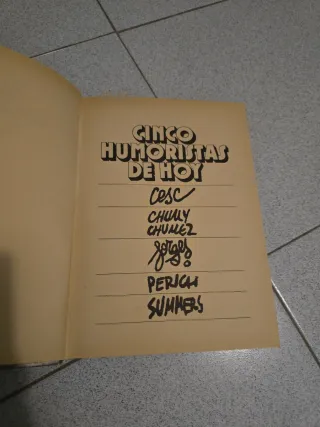 CINCO
HUMORISTAS
DE HOY
Cesc
CHUMY
CHUMEZ
forges!
PERICH
SUMMERS